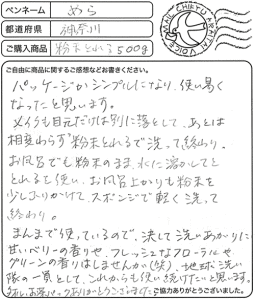 ペンネーム めら
都道府県 神奈川
ご購入商品 粉末とれる500g
MAIL CHIKYU ARAITAI VOICE
ご自由に商品に関するご感想などお書きください。
パッケージがシンプルになり、使い易く
なったと思います。
メイクも目元だけは別に落として、あとは
相変わらず"粉末とれるで洗って終わり。
お風呂でも粉末のまま、水に溶かしてと
とれるを使い、お風呂上がりも粉末を
少しふりかけて スポンジで軽く洗って
終わり。
まんまで使っているので、決して洗いあがりに
甘いベリーの香りや、フレッシュなフローラルや
グリーンの香りはしませんが(笑)、地球洗い
隊の一員として、これからも使い続けたいと思います。
ありがとうございます
ご協力ありがとうございました。